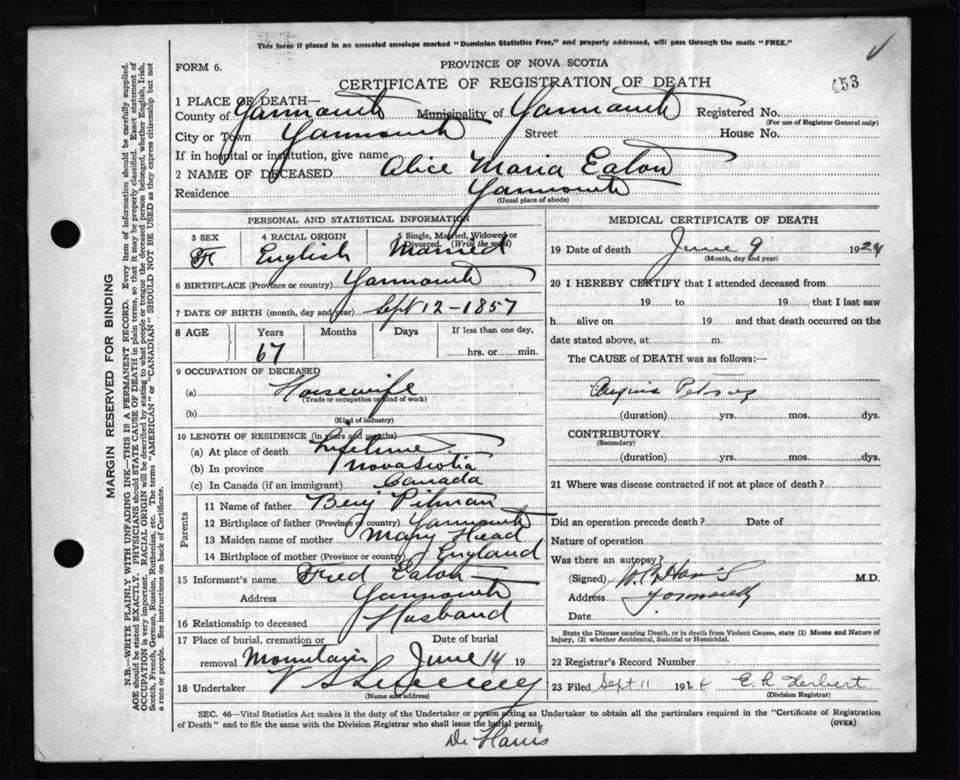 This form if placed in an unsealed envelope marked "Dominion Statistics Free," and properly addressed, will pass through the mails "FREE."
FORM 6.
PROVINCE OF NOVA SCOTIA
CERTIFICATE OF REGISTRATION OF DEATH
453
1 PLACE OF DEATH—
County of Yarmouth Municipality of Yarmouth Registered No.
(For use of Registrar General only)
City or Town Yarmouth Street House No.
If in hospital or institution, give name
2 NAME OF DECEASED Alice Maria Eaton
Residence Yarmouth
(Usual place of abode)
PERSONAL AND STATISTICAL INFORMATION
3 SEX 4 RACIAL ORIGIN 5 Single, Married, Widowed or Divorced. (Write the word)
F English Married
6 BIRTHPLACE (Province or country) Yarmouth
7 DATE OF BIRTH (month, day and year) Sept 12-1857
8 AGE Years Months Days If less than one day,
67 hrs. or min.
9 OCCUPATION OF DECEASED
(a) Housewife
(Trade or occupation or kind of work)
(b)
(Kind of industry)
10 LENGTH OF RESIDENCE (in years and months)
(a) At place of death Lifetime
(b) In province Nova Scotia
(c) In Canada (if an immigrant) Canada
Parents
11 Name of father Benj Pitman
12 Birthplace of father (Province or country) Yarmouth
13 Maiden name of mother Mary Head
14 Birthplace of mother (Province or country) England
15 Informant's name Fred Eaton
Address Yarmouth
16 Relationship to deceased Husband
17 Place of burial, cremation or removal Mountain Date of burial June 14 19
18 Undertaker
(Name and address)
MEDICAL CERTIFICATE OF DEATH
19 Date of death June 9 1924
(Month, day and year)
20 I HEREBY CERTIFY that I attended deceased from
19 to 19 that I last saw
h alive on 19 and that death occurred on the
date stated above, at m.
The CAUSE of DEATH was as follows:—
Angina Pectoris
(duration) yrs. mos. dys.
CONTRIBUTORY
(Secondary)
(duration) yrs. mos. dys.
21 Where was disease contracted if not at place of death?
Did an operation precede death? Date of
Nature of operation
Was there an autopsy?
(Signed) Harris M.D.
Address Yarmouth
Date
State the Disease causing Death, or in death from Violent Causes, state (1) Means and Nature of
Injury, (2) whether Accidental, Suicidal or Homicidal.
22 Registrar's Record Number
23 Filed Sept 11 1924 Herbert
(Division Registrar)
SEC. 46—Vital Statistics Act makes it the duty of the Undertaker or person acting as Undertaker to obtain all the particulars required in the "Certificate of Registration
of Death" and to file the same with the Division Registrar who shall issue the burial permit. (OVER)
Dr Harris
MARGIN RESERVED FOR BINDING
N.B.—WRITE PLAINLY WITH UNFADING INK—THIS IS A PERMANENT RECORD. Every item of information should be carefully supplied.
AGE should be stated EXACTLY. PHYSICIANS should STATE CAUSE OF DEATH in plain terms, so that it may be properly classified. Exact statement of
OCCUPATION is very important. RACIAL ORIGIN will be described by stating to what people or tongue the deceased person belonged, whether English, Irish,
Scotch, French, German, Russian, Ruthenian, etc. The terms "AMERICAN" or "CANADIAN" SHOULD NOT BE USED as they express citizenship but not
a race or people. See instructions on back of Certificate.